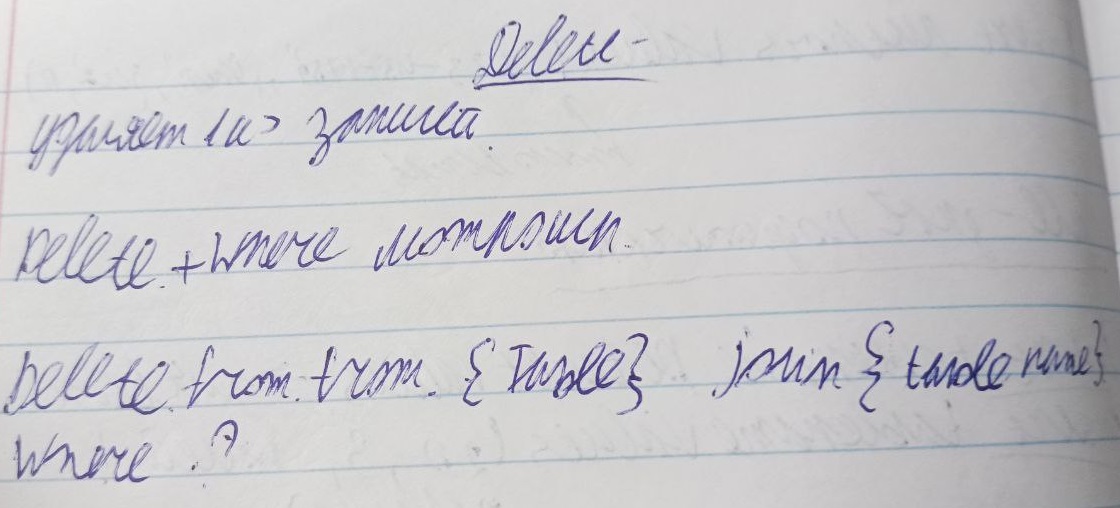 Delete -
удаляет 1 и > записей.
Delete + where
Delete from from {Table} join {table name}
where ?